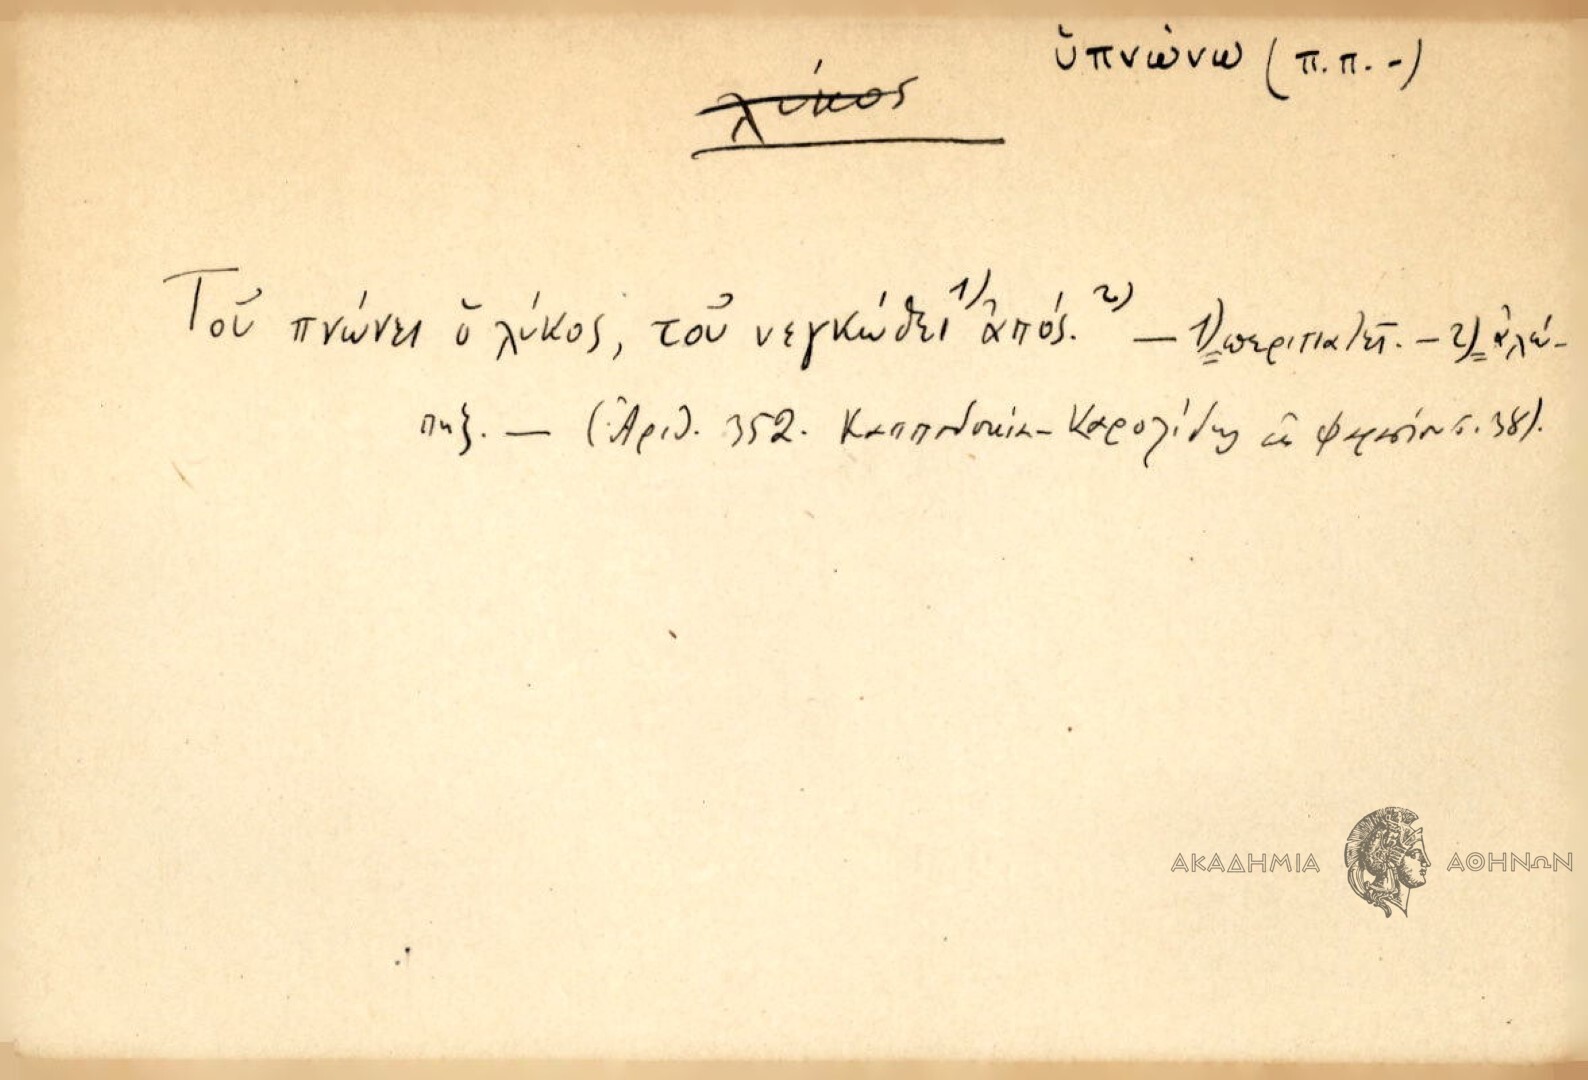 ὑπνώνω (π.π. -)
λύκος
Τοῦ πνώνει ὁ λύκος, τοῦ νεγκώθει 1) ἀπός. 2) — 1) περιπατεῖ. — 2) ἀλώ-
πηξ. — (Ἀριθ. 352. Καππαδοκία - Καρολίδης ἐκ Φαράσων σ. 38).
ΑΚΑΔΗΜΙΑ ΑΘΗΝΩΝ